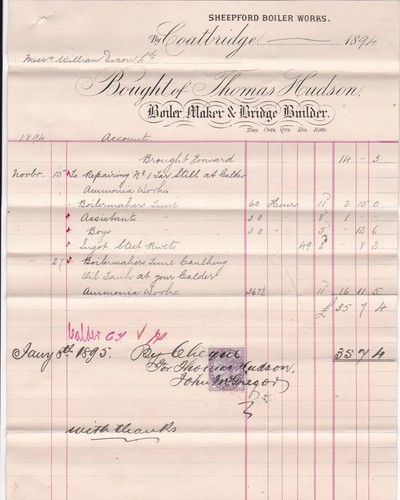 SHEEPFORD BOILER WORKS.
Coatbridge. 1894
Messrs William Dixon Ltd
Bought of Thomas Hudson.
Boiler Maker & Bridge Builder.
Tons Cwts. Qrs. Lbs. Rate
1894 Account
Brought Forward 14 - 3
Novbr. 15 To Repairing No 1 Tar Still at Calder
Ammonia Works
" Boilermakers Time 60 Hours 11 2 15 0
" Assistants 30 " 8 1 - -
" Boys 30 " 5 - 12 6
" Ingot Steel Rivets 49 2 - 8 2
- 27 " Boilermakers Time Caulking
Oil Tank at your Calder
Ammonia Works 367½ " 11 16 11 5
£ 35 7 4
Calder
Jany 8th 1895. By Cheque 35 7 4
For Thomas Hudson,
John McGregor
with thanks